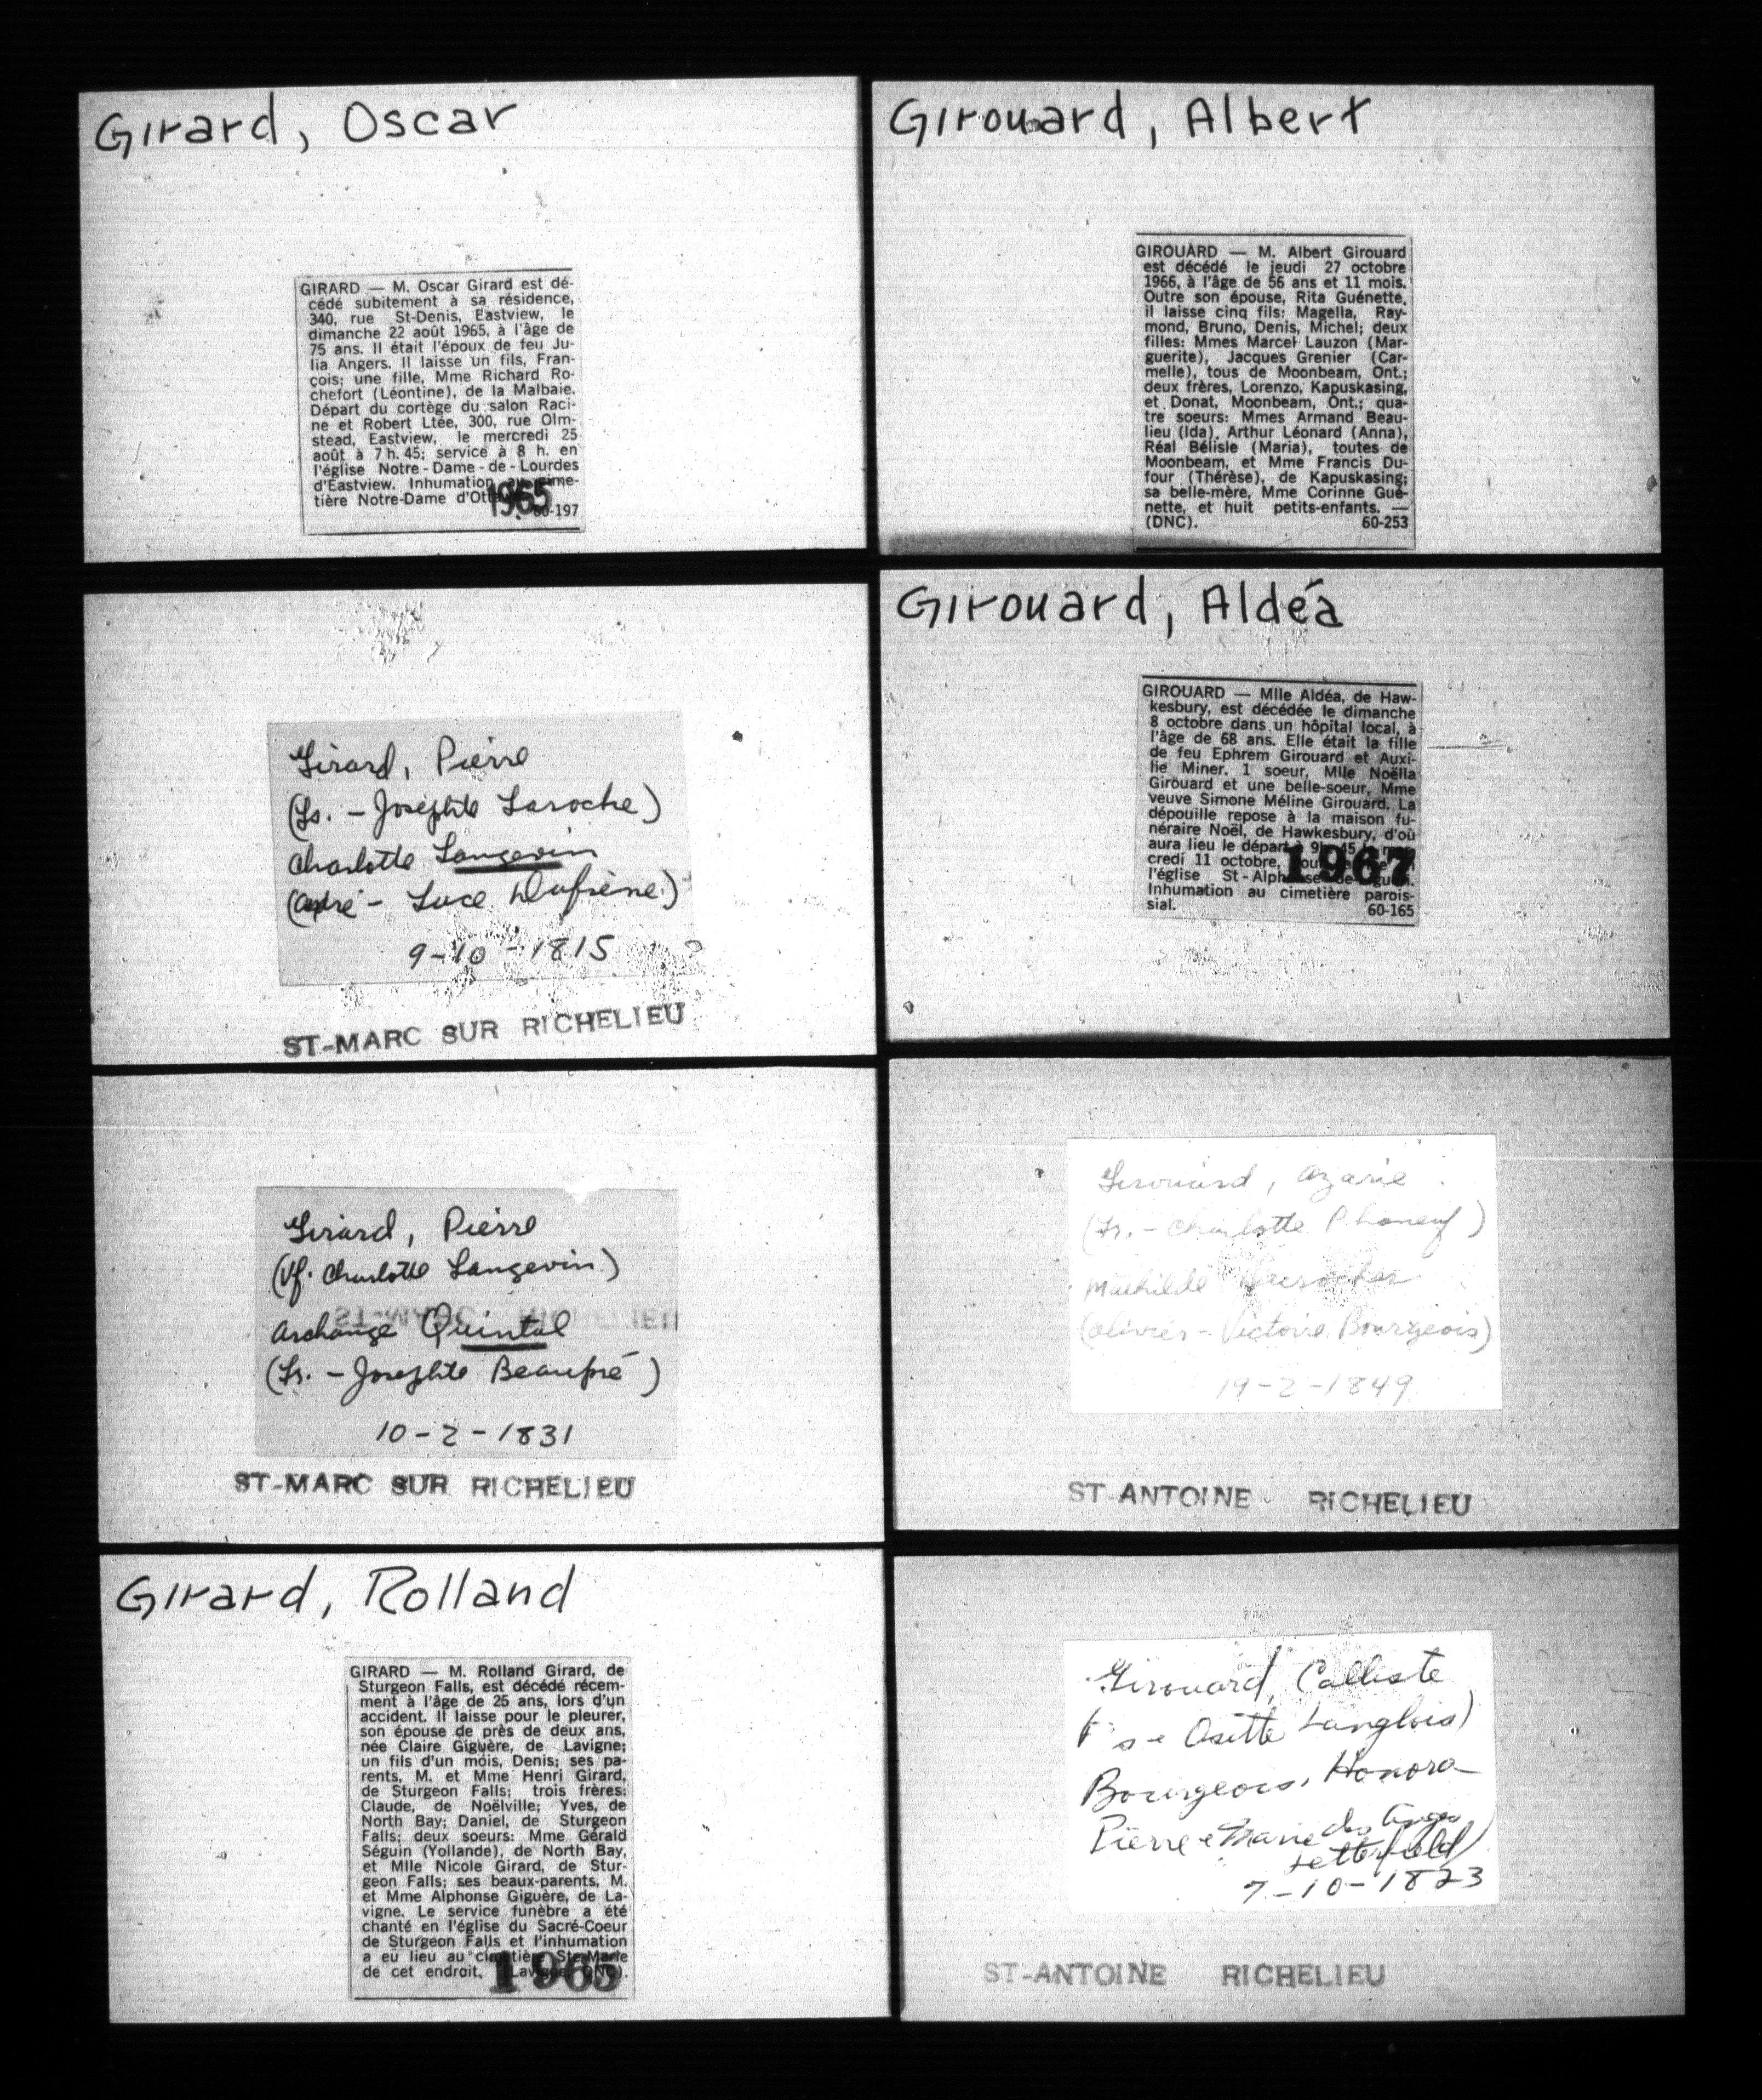 Girard, Oscar
GIRARD — M. Oscar Girard est dé-
cédé subitement à sa résidence,
340, rue St-Denis, Eastview, le
dimanche 22 août 1965, à l'âge de
75 ans. Il était l'époux de feu Ju-
lia Angers. Il laisse un fils, Fran-
çois; une fille, Mme Richard Ro-
chefort (Léontine), de la Malbaie.
Départ du cortège du salon Raci-
ne et Robert Ltée, 300, rue Olm-
stead, Eastview, le mercredi 25
août à 7 h. 45; service à 8 h. en
l'église Notre-Dame-de-Lourdes
d'Eastview. Inhumation au cime-
tière Notre-Dame d'Ottawa.
1965
60-197
Girard, Pierre
(Fs. - Josephte Laroche)
Charlotte Langevin
(André - Luce Dufrène)
9-10-1815
ST-MARC SUR RICHELIEU
Girard, Pierre
(Vf. Charlotte Langevin)
Archange Quintal
(Fs. - Josephte Beaupré)
10-2-1831
ST-MARC SUR RICHELIEU
Girard, Rolland
GIRARD — M. Rolland Girard, de
Sturgeon Falls, est décédé récem-
ment à l'âge de 25 ans, lors d'un
accident. Il laisse pour le pleurer,
son épouse de près de deux ans,
née Claire Giguère, de Lavigne;
un fils d'un mois, Denis; ses pa-
rents, M. et Mme Henri Girard,
de Sturgeon Falls; trois frères:
Claude, de Noëlville; Yves, de
North Bay; Daniel, de Sturgeon
Falls; deux soeurs: Mme Gérald
Séguin (Yollande), de North Bay,
et Mlle Nicole Girard, de Stur-
geon Falls; ses beaux-parents, M.
et Mme Alphonse Giguère, de La-
vigne. Le service funèbre a été
chanté en l'église du Sacré-Coeur
de Sturgeon Falls et l'inhumation
a eu lieu au cimetière Ste-Marie
de cet endroit.
1965
Girouard, Albert
GIROUARD — M. Albert Girouard
est décédé le jeudi 27 octobre
1966, à l'âge de 56 ans et 11 mois.
Outre son épouse, Rita Guénette,
il laisse cinq fils: Magella, Ray-
mond, Bruno, Denis, Michel; deux
filles: Mmes Marcel Lauzon (Mar-
guerite), Jacques Grenier (Car-
melle), tous de Moonbeam, Ont.;
deux frères, Lorenzo, Kapuskasing,
et Donat, Moonbeam, Ont.; qua-
tre soeurs: Mmes Armand Beau-
lieu (Ida), Arthur Léonard (Anna),
Réal Bélisle (Maria), toutes de
Moonbeam, et Mme Francis Du-
four (Thérèse), de Kapuskasing;
sa belle-mère, Mme Corinne Gué-
nette, et huit petits-enfants. —
(DNC). 60-253
Girouard, Aldéa
GIROUARD — Mlle Aldéa, de Haw-
kesbury, est décédée le dimanche
8 octobre dans un hôpital local, à
l'âge de 68 ans. Elle était la fille
de feu Ephrem Girouard et Auxi-
lie Miner. 1 soeur, Mlle Noëlla
Girouard et une belle-soeur, Mme
veuve Simone Méline Girouard. La
dépouille repose à la maison fu-
néraire Noël, de Hawkesbury, d'où
aura lieu le départ à 9h. 45 le mer-
credi 11 octobre, pour
l'église St-Alphonse-de-
Inhumation au cimetière parois-
sial. 60-165
1967
Girouard, Azarie
(Fs. - Charlotte Phaneuf)
Mathilde
(Olivier - Victoire Bourgeois)
19-2-1849
ST ANTOINE RICHELIEU
Girouard, Calliste
Osette Langlois)
Bourgeois, Honora
Pierre e Marie des Anges
7-10-1823
ST-ANTOINE RICHELIEU